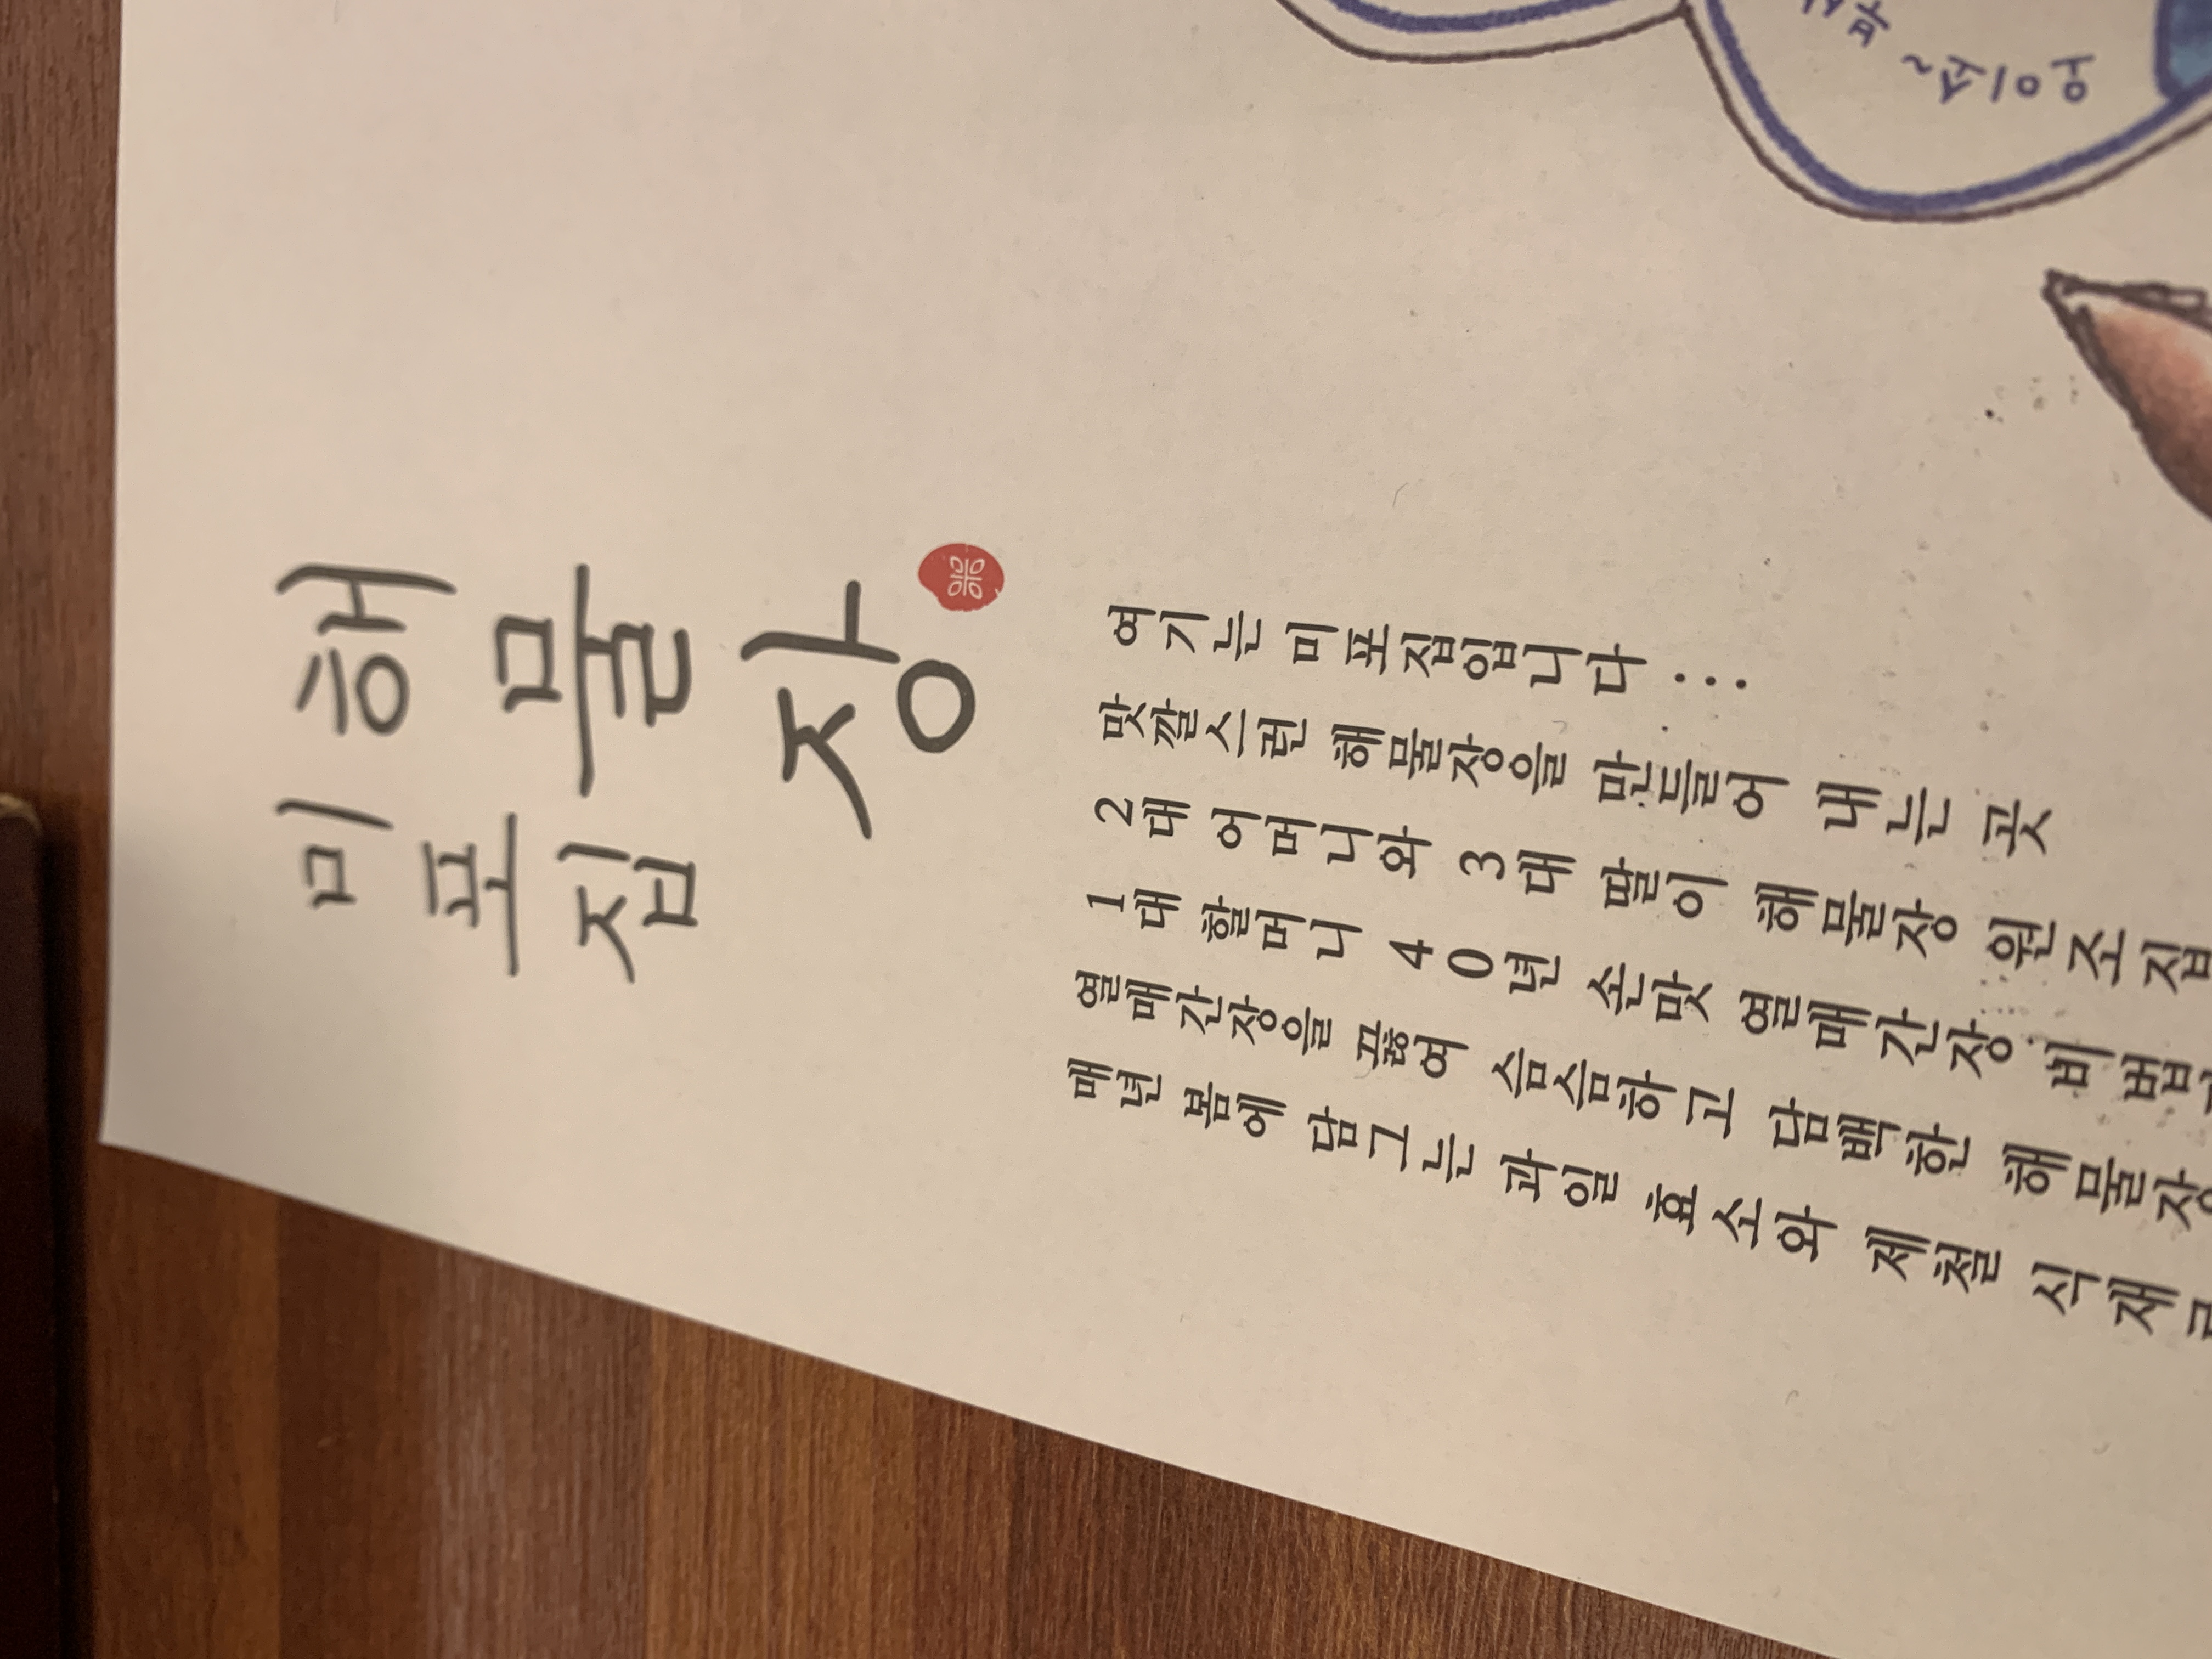 미포집
해물장
매년 봄에 담그는 과일 효소와 제철 식재
열매간장을 끓여 슴슴하고 담백한 해물장
1대 할머니 40년 손맛 열매간장 비법
2대 어머니와 3대 딸이 해물장 원조집
맛깔스런 해물장을 만들어 내는 곳
여기는 미포집입니다...